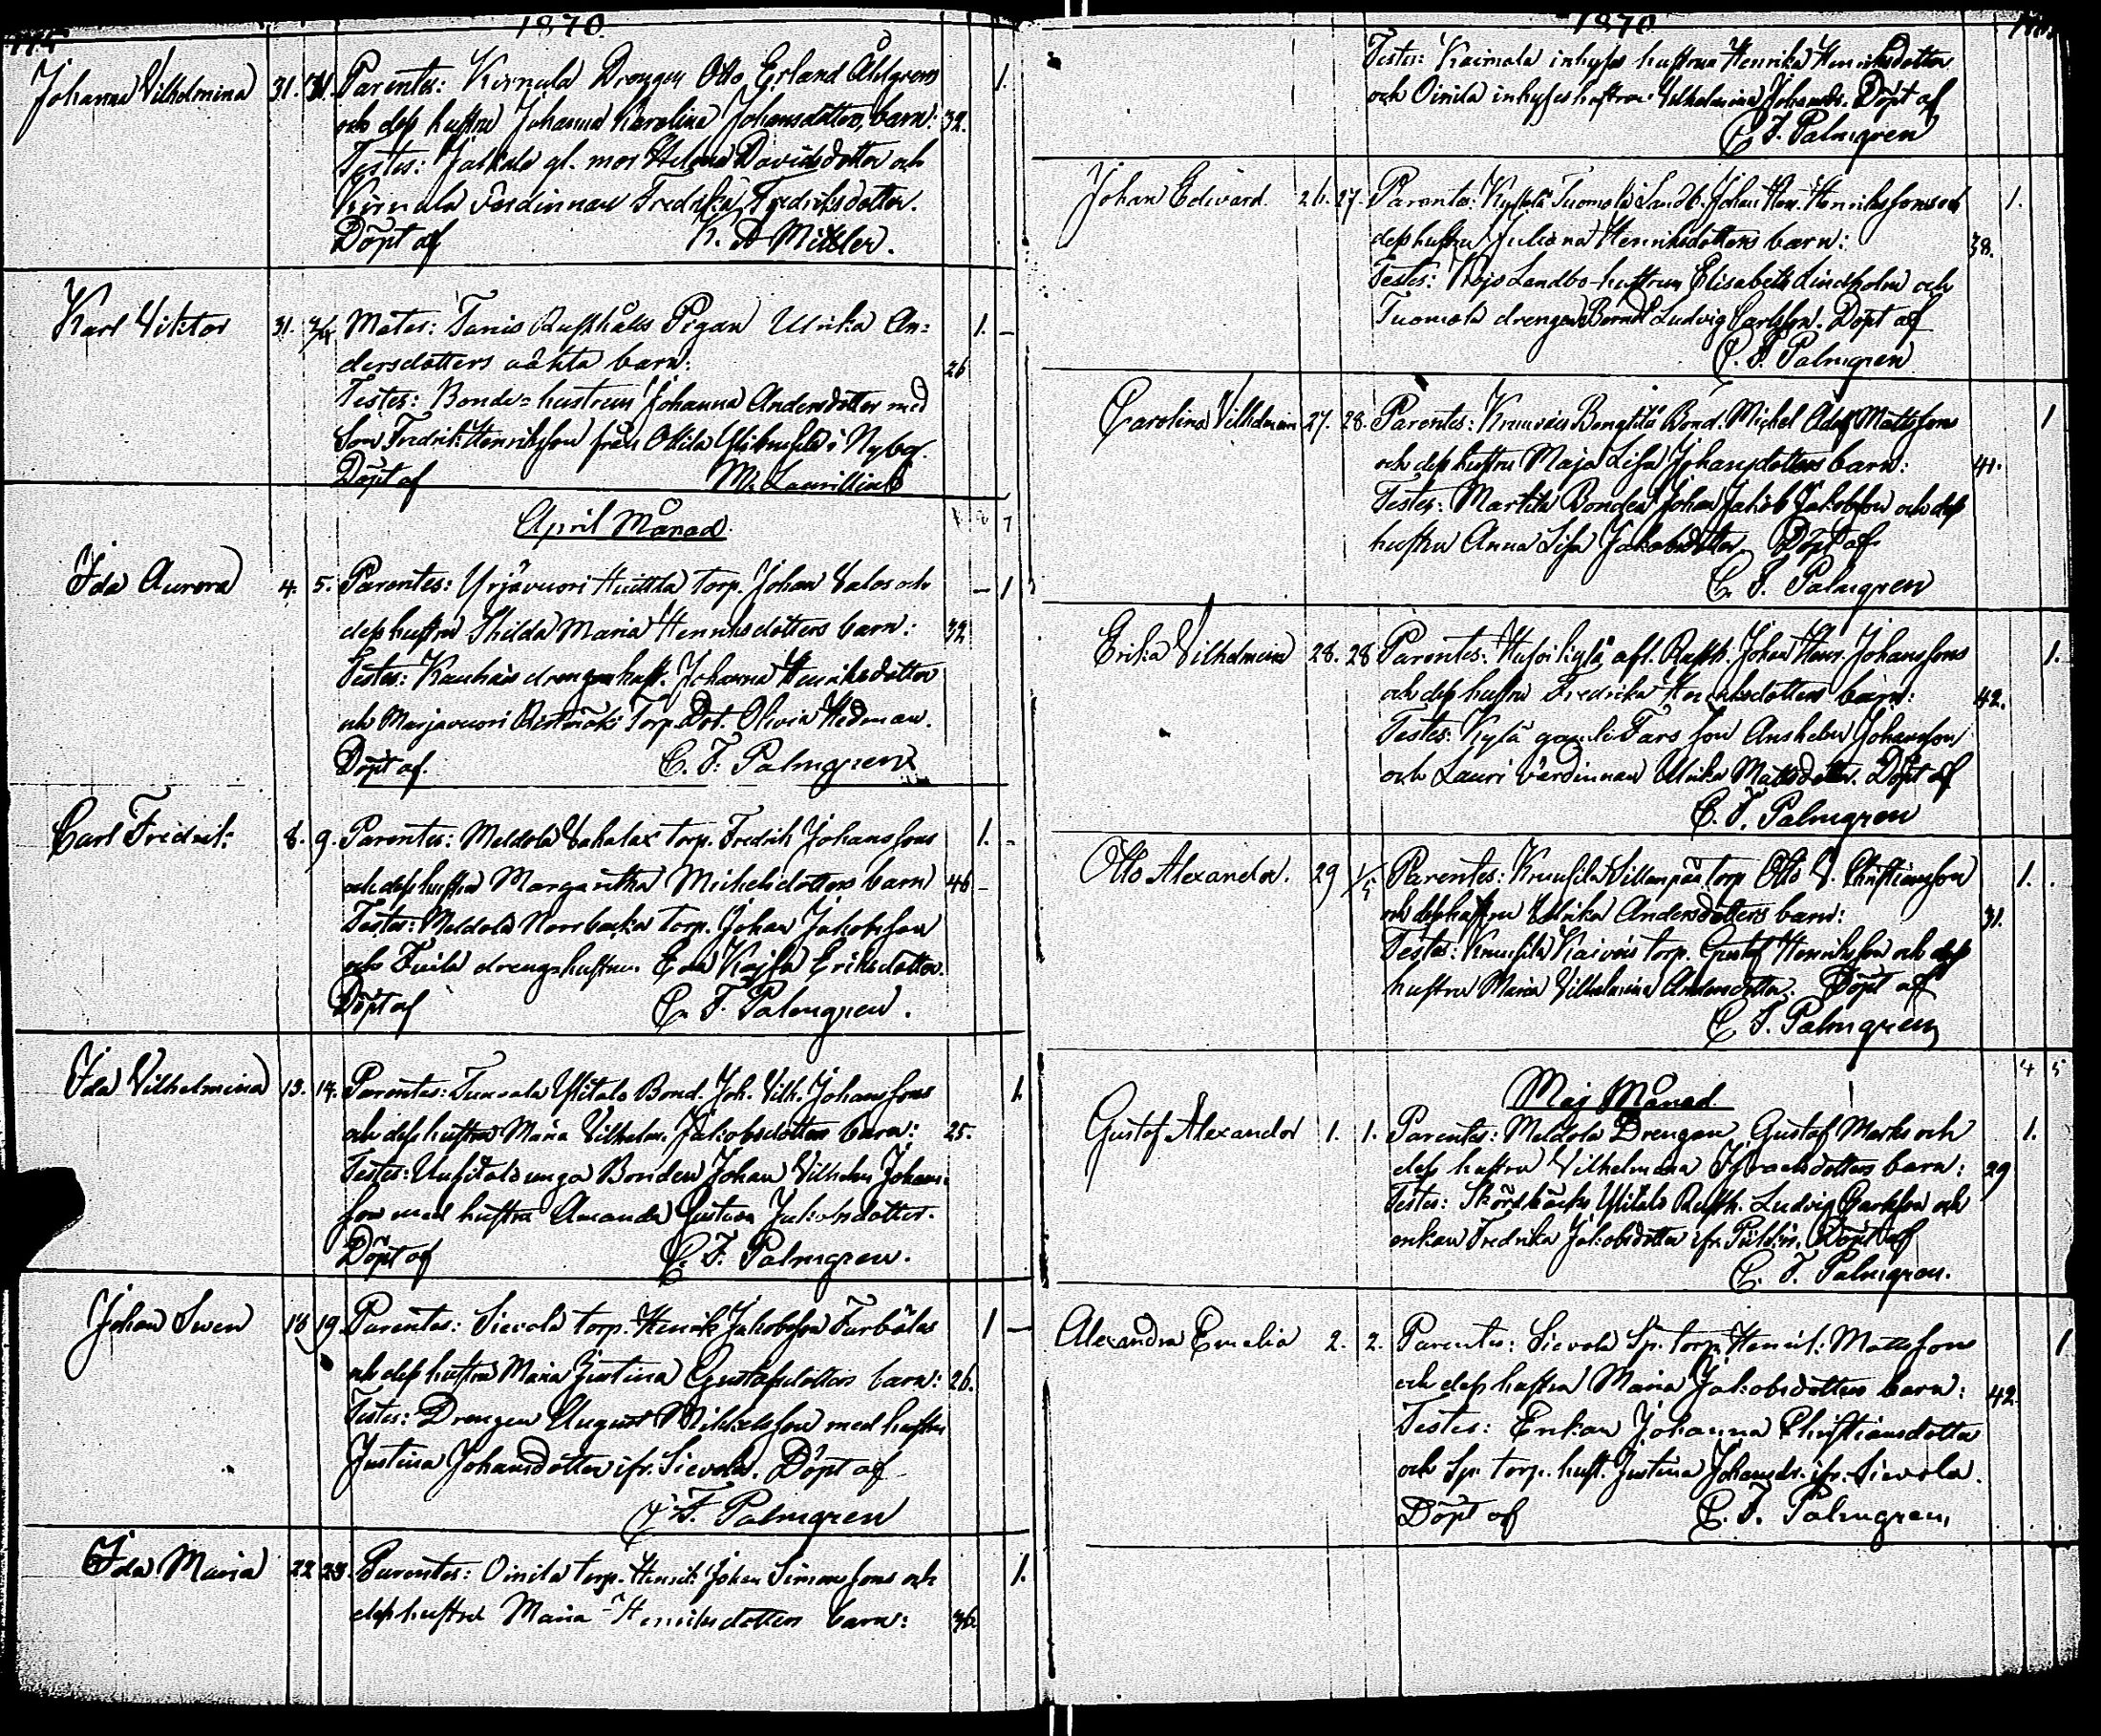 1870.
Johanna Vilhelmina 31. 31. Parentes: Kirmula Drengen Otto Erland Åhlgrens 1.
och dess hustru Johanna Karolina Johansdotters barn: 32.
Testes: gl. mor Helena Davidsdotter och
Kirmula värdinnan Fredrika Fredriksdotter.
Döpt af K. A. Miller.
Karl Viktor 31. Mater: Tanis Rusthålls Pigan Ulrika An= 1. –
dersdotters oäkta barn: 26
Testes: Bonde=hustrun Johanna Andersdotter med
Son Fredrik Henriksson från i Nyby.
Döpt af
April Månad.
Ida Aurora 4. 5. Parentes: Yrjävuori torp. Johan Salos och – 1
dess hustru Hilda Maria Henriksdotters barn: 32
Testes: drengen hust. Johanna Henriksdotter
och Marjavuori Torp. Dot. Olivia Hedman.
Döpt af. C. F. Palmgren
Carl Fredrik 8. 9. Parentes: Meldola torp. Fredrik Johanssons 1. -
och dess hustru Margaretha Michelsdotters barn 46 –
Testes: Meldola Norrbacka torp. Johan Jakobsson
och drengshustrun Eva Kajsa Eriksdotter.
Döpt af C. F. Palmgren.
Ida Vilhelmina 13. 14. Parentes: Ylitalo Bond. Joh. Vilh. Johanssons 1.
och dess hustru Maria Vilhelm. Jakobsdotters barn: 25.
Testes: Uusitalo unga Bonden Johan Vilhelm Johans-
son med hustru Amanda Gustava Jakobsdotter.
Döpt af C. F. Palmgren.
Johan Swen 18 19. Parentes: Sievola torp. Henrik Jakobsson 1 –
och dess hustru Maria Justina Gustafsdotters barn: 26.
Testes: Drengen August Mikkelsson med hustru
Justina Johansdotter ifr. Sievola. Döpt af
C. F. Palmgren
Ida Maria 22 23. Parentes: Oinila torp. Henrik Johan Simonssons och 1.
dess hustru Maria Henriksdotters barn: 36.
1870
Testes: Kaimala inhyses hustrun Henrika Henriksdotter
och Oinila inhyseshustrun Vilhelmina Johansdr. Döpt af
C. F. Palmgren
Johan Edward. 26. 27. Parentes: Tuomola Landb. Johan Henr. Henrikssons och 1.
dess hustru Juliana Henriksdotters barn: 38.
Testes: Landbo-hustrun Elisabeth Lindholm och
Tuomola drengen Berndt Ludvig Carlsson. Döpt af
C. F. Palmgren
Carolina Vilhelmin 27. 28. Parentes: Bengtilä Bond. Michel Adolf Mattssons 1
och dess hustru Maja Lisa Johansdotters barn: 41.
Testes: Marttila Bonden Johan Jakob Jakobsson och dess
hustru Anna Lisa Jakobsdotter. Döpt af
C. F. Palmgren
Erika Vilhelmina 28. 28 Parentes: Kylä afl. Rusth. Johan Henr. Johanssons 1.
och dess hustru Fredrika Henriksdotters barn: 42.
Testes: Kylä gamle Fars son Anshelm Johansson
och Lauri värdinnan Ulrika Mattsdotter. Döpt af
C. F. Palmgren
Otto Alexander. 29 1/5 Parentes: Sillanpää torp. Otto V. Christiansson 1. .
och dess hustru Ulrika Andersdotters barn: 31.
Testes: torp. Gustaf Henriksson och dess
hustru Maria Vilhelmina Andersdotter. Döpt af
C. F. Palmgren
4 5
Maj Månad.
Gustaf Alexander 1. 1. Parentes: Meldola Drengen Gustaf Marks och 1.
dess hustru Vilhelmina Israelsdotters barn: 29
Testes: Ylitalo Rusth. Ludvig Carlsson och
enkan Fredrika Jakobsdotter ifr. Döpt af
C. F. Palmgren.
Alexandra Emelia 2. 2. Parentes: Sievola Sp. torp. Henrik Mattssons 1
och dess hustru Maria Jakobsdotters barn: 42.
Testes: Enkan Johanna Christiansdotter
och Sp. torp. hust. Justina Johansdr. ifr. Sievola.
Döpt af C. F. Palmgren.